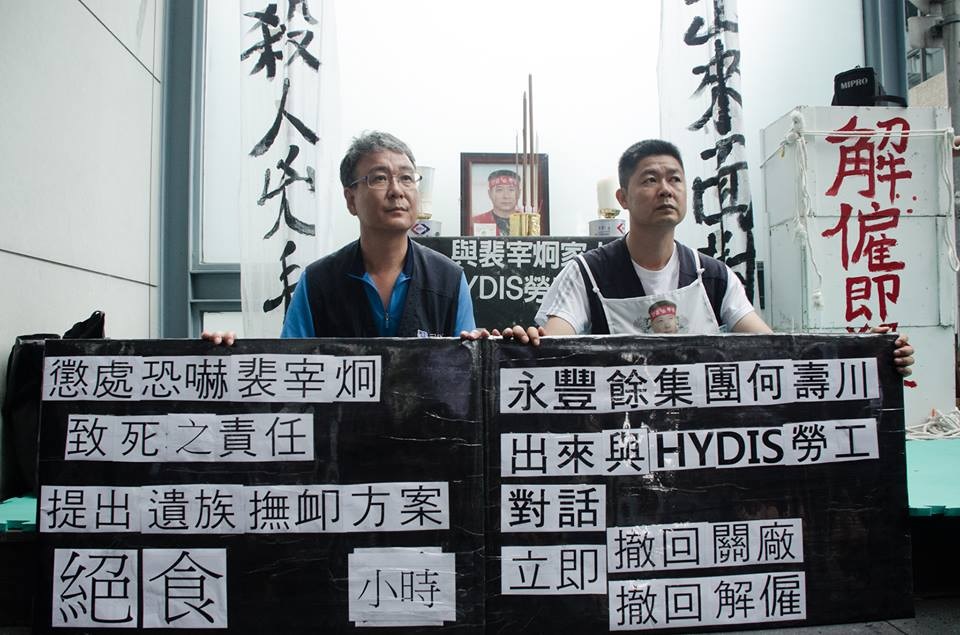 殺人兇手
出來面對
MIPRO
解僱即
與裴宰炯家
YDIS勞
懲處恐嚇裴宰炯
致死之責任
提出遺族撫卹方案
絕食 小時
永豐餘集團何壽川
出來與HYDIS勞工
對話
立即撤回關廠
撤回解僱